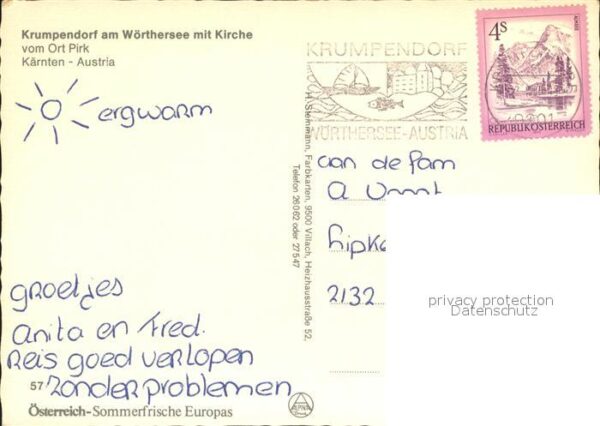 Krumpendorf am Wörthersee mit Kirche
vom Ort Pirk
Kärnten - Austria
ergwarm
groetjes
Anita en Fred.
Reis goed verlopen
zonder problemen
57
Österreich-Sommerfrische Europas
H. Steinmann, Farbkarten, 9500 Villach, Heizhausstraße 52,
Telefon 26062 oder 27547
KRUMPENDORF
WÖRTHERSEE-AUSTRIA
4S
REPUBLIK ÖSTERREICH
aan de fam
2132
privacy protection
Datenschutz